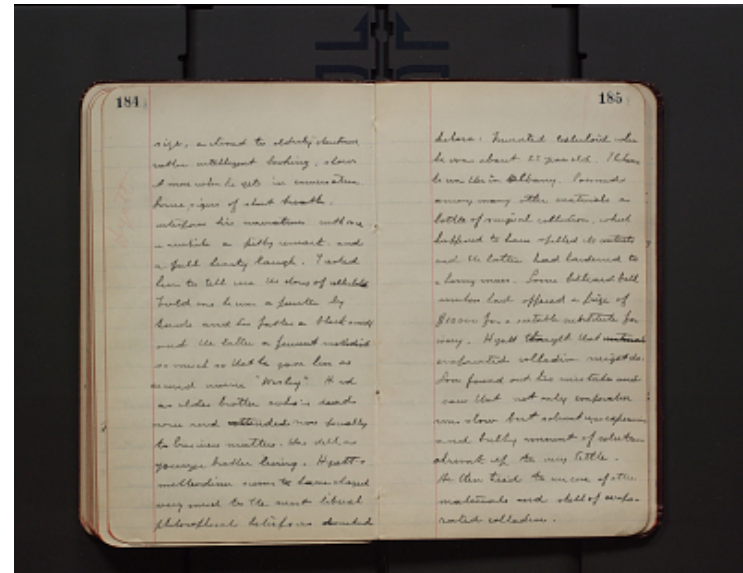 184
size, a tired to elderly
rather intelligent looking, slow
at more when he gets in conversation
Some signs of short breath.
intersperses his narratives with once
a while a pithy remark and
a full hearty laugh. I asked
him to tell me the story of celluloid
told me he was a printer by
trade and his father a blacksmith
and the latter a fervent methodist
so much so that he gave him as
second name "Wesley". Had
an older brother who is dead
now and attended now
to business matters. Has still a
younger brother living. Hyatt's
methodism seems to have changed
very much to the most liberal
philosophical beliefs as
185
before. Invented celluloid when
he was about 25 years old. Then
he was then in Albany. Found
among many other materials a
bottle of surgical collodion, which
happened to have spilled its contents
and the latter had hardened to
a horny mass. Some billiard ball
had offered a prize of
$10000 for a suitable substitute for
ivory. Hyatt thought that
evaporated collodion might do.
Soon found out his mistake and
saw that not only evaporation
was slow but solvent was expensive
and bulky amount of solution
shrank up to very little.
He then tried to use of other
materials and still of evapo-
rated collodion.